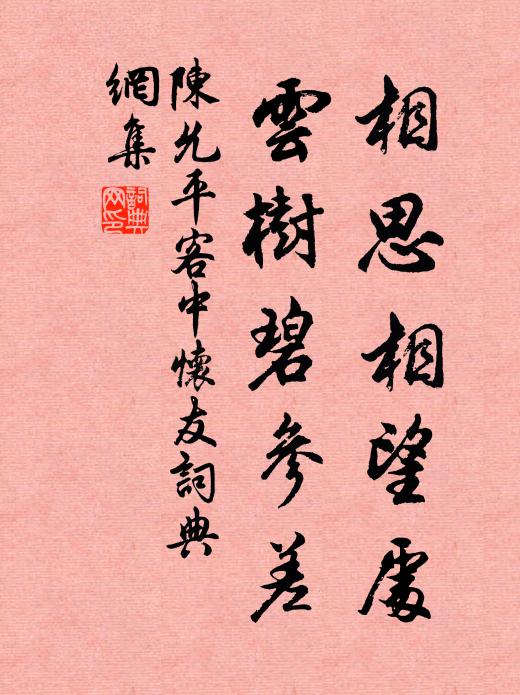 相思相望處
雲樹碧參差
陳允平客中懷友詞典
網集
詞典網印